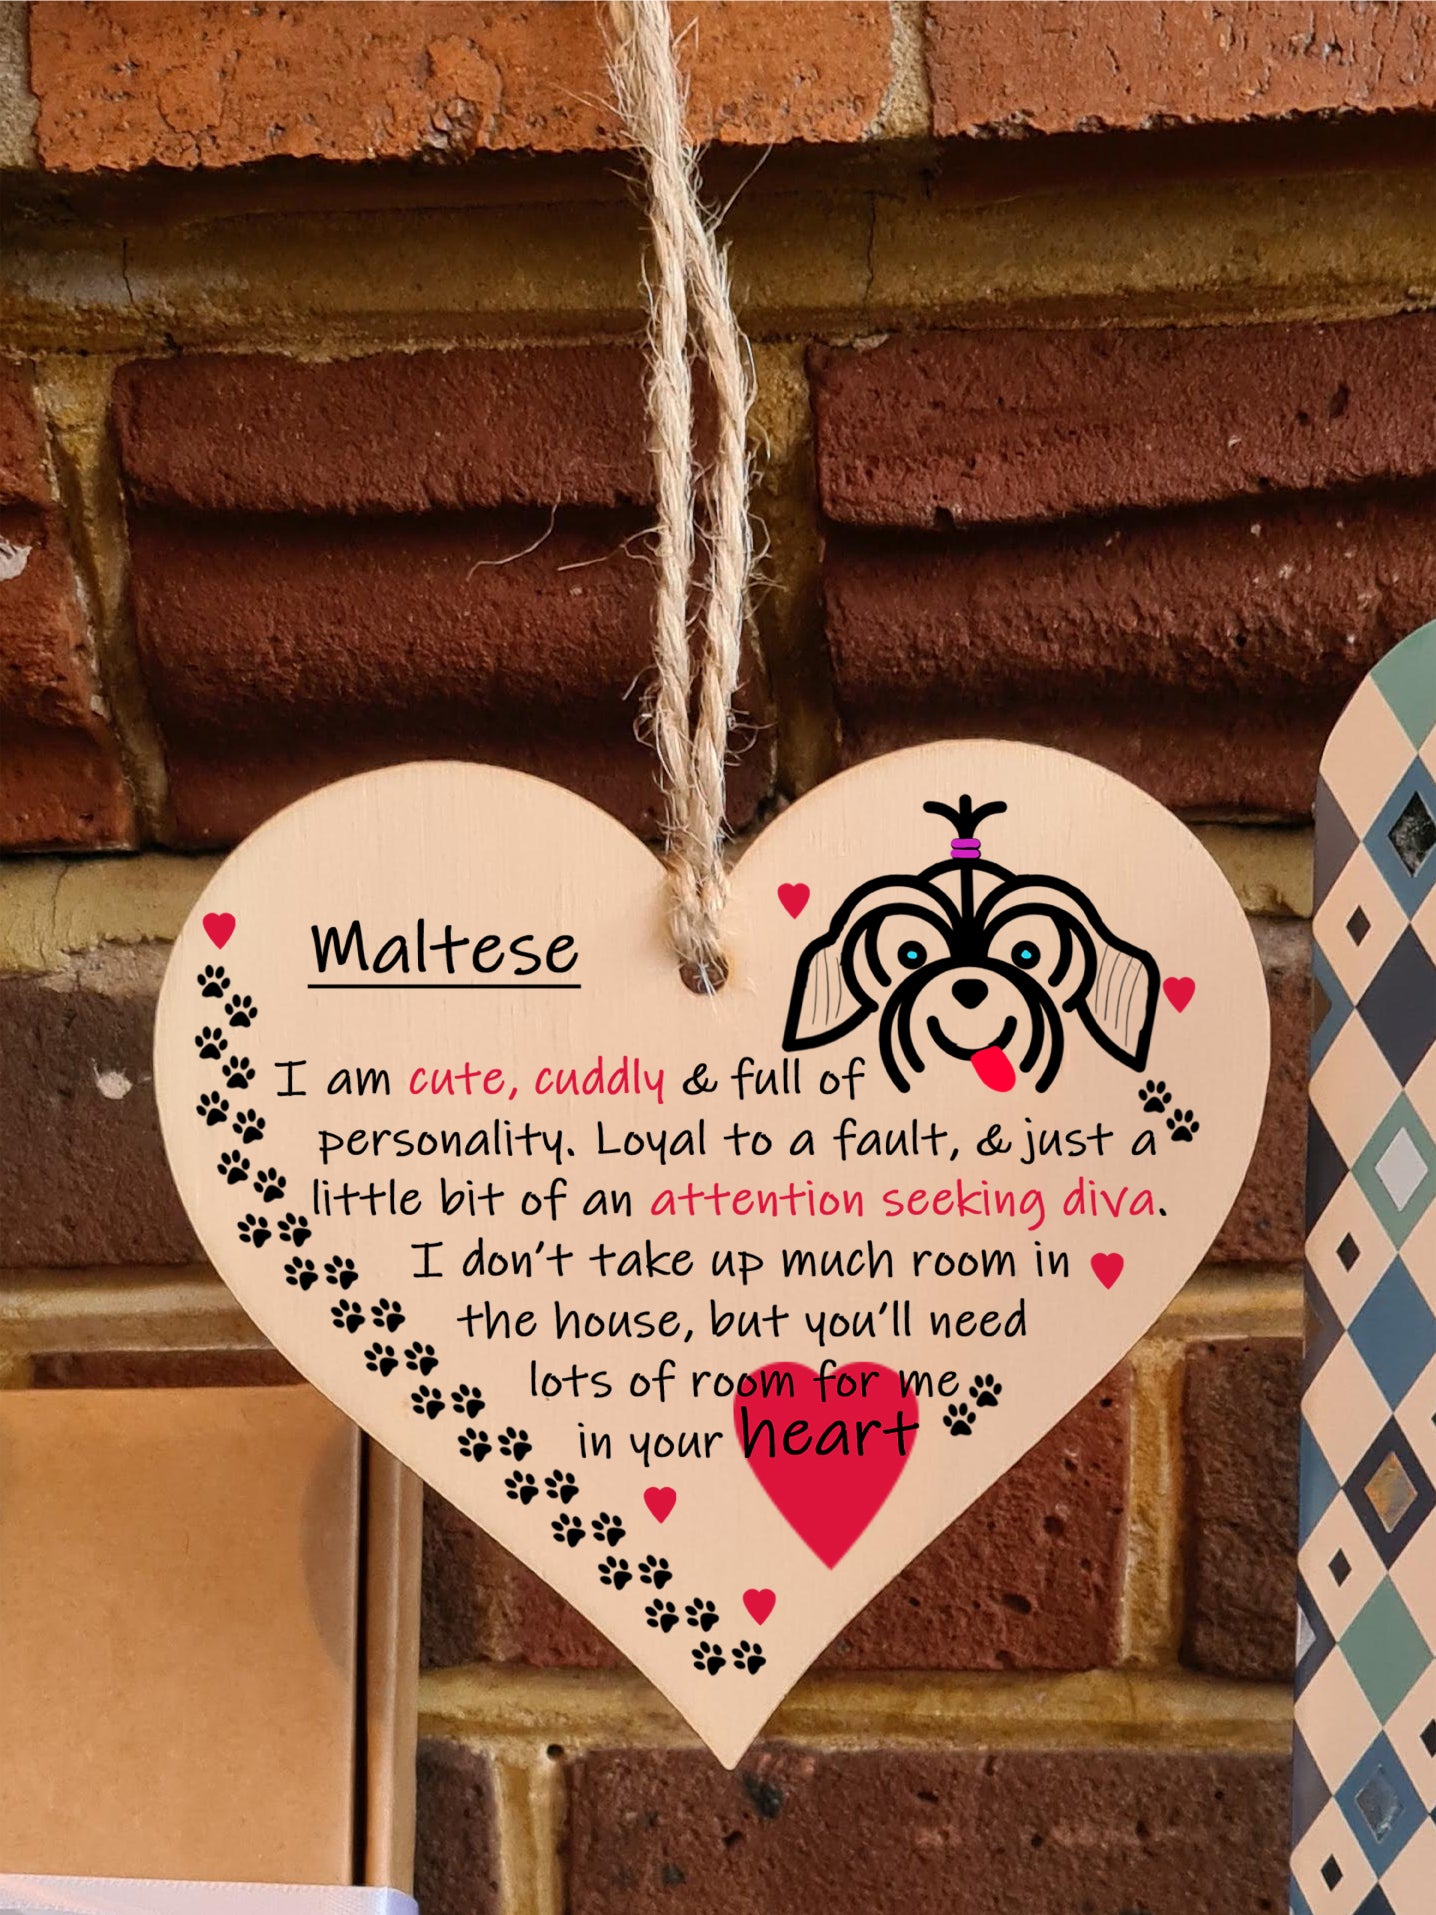 Maltese
I am cute, cuddly & full of
personality. Loyal to a fault, & just a
little bit of an attention seeking diva.
I don't take up much room in
the house, but you'll need
lots of room for me
in your heart